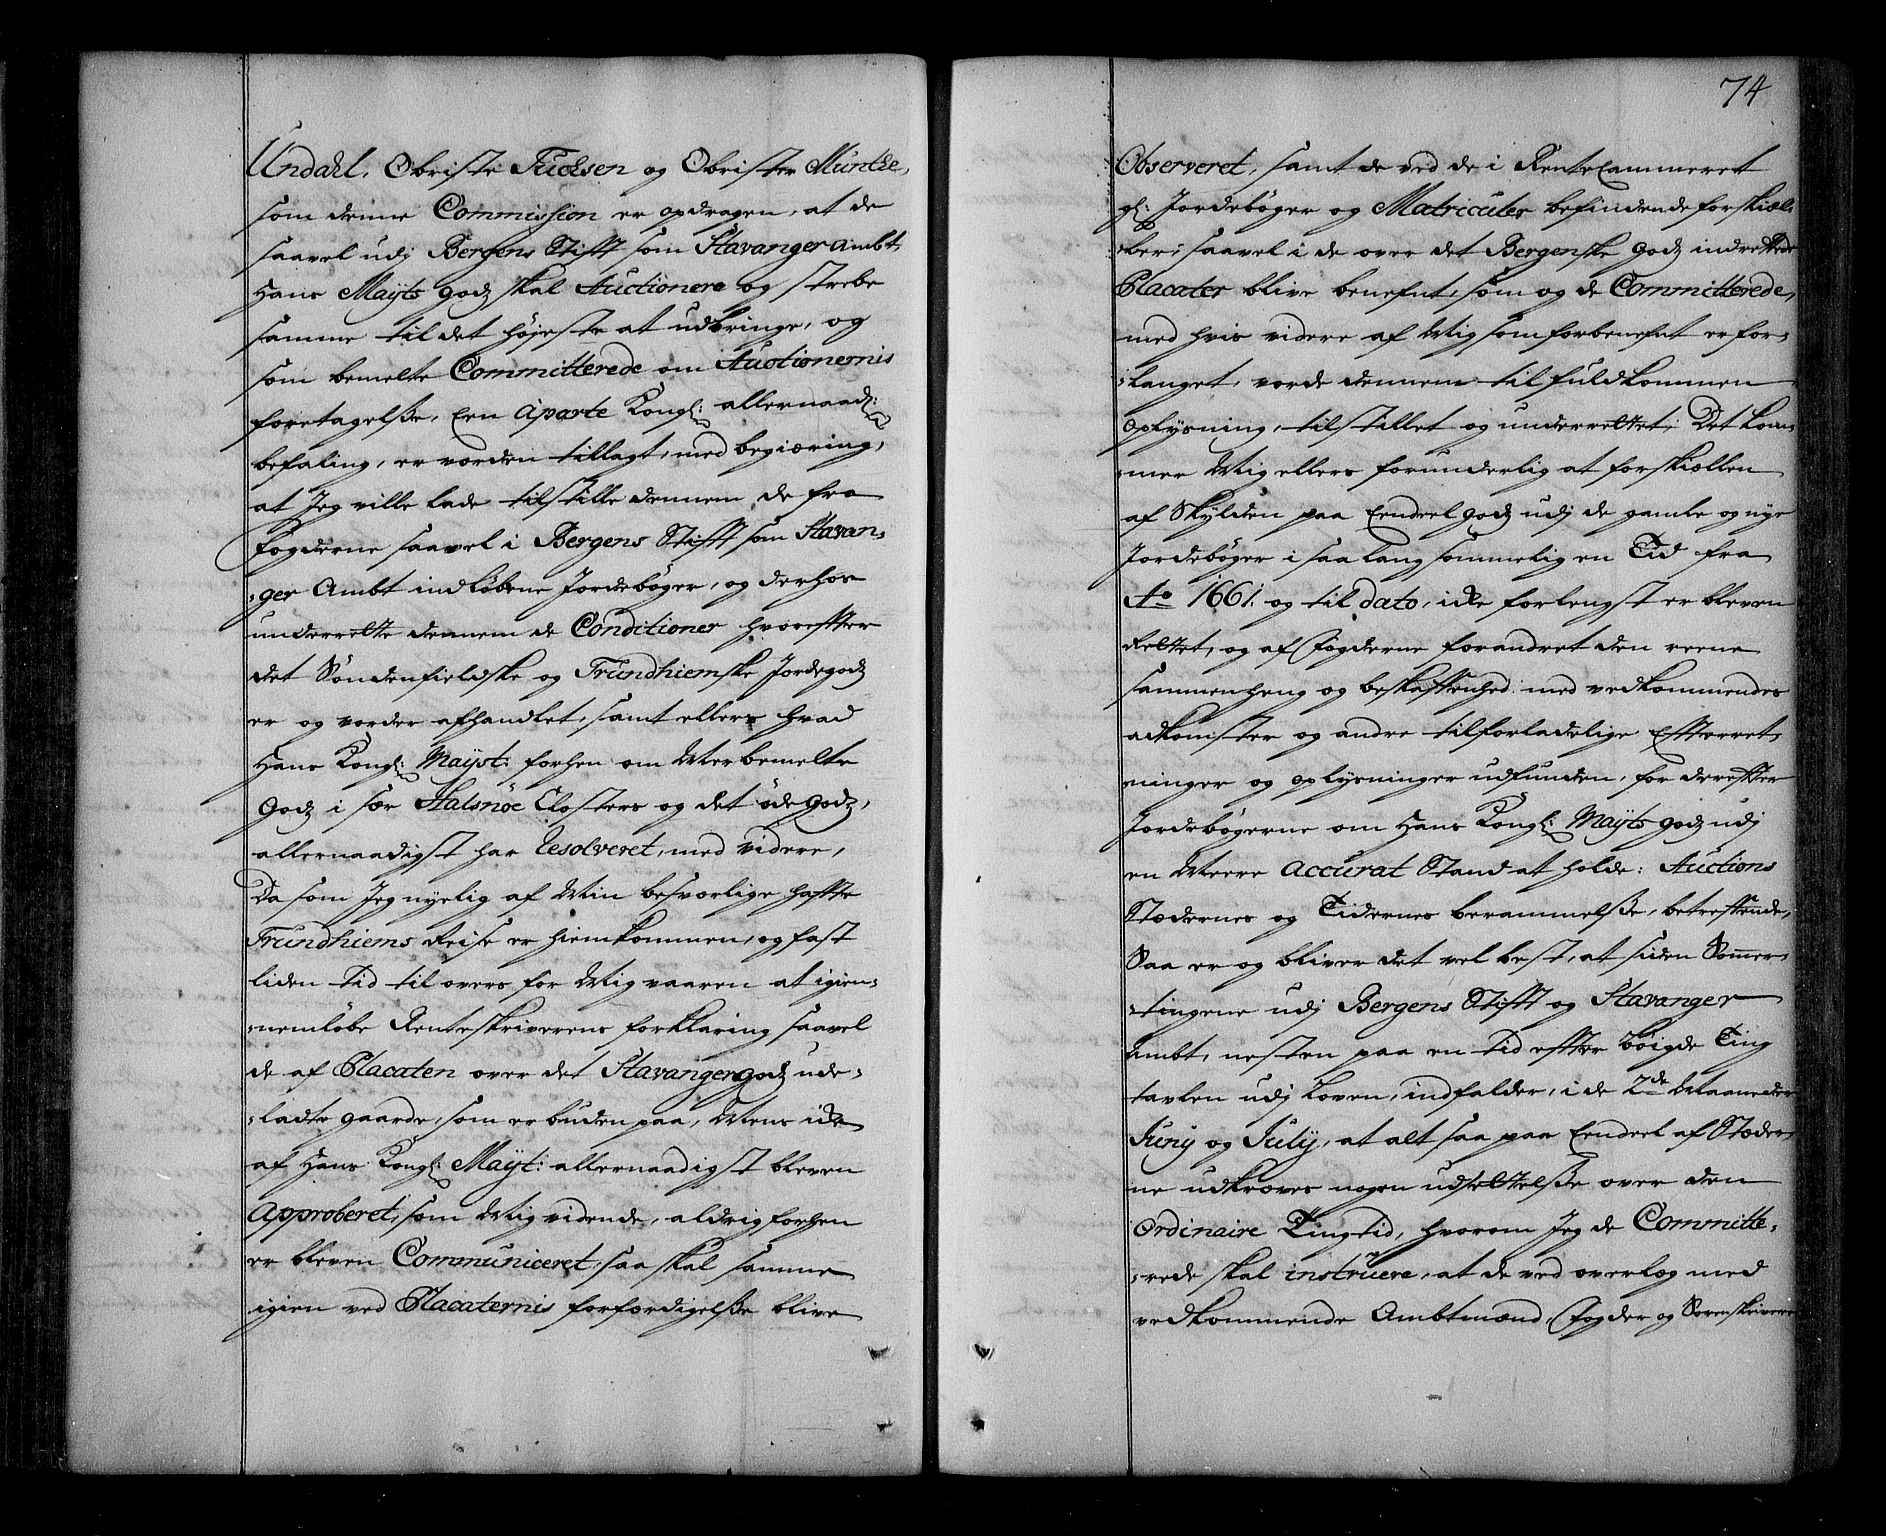 Undahl, Obriste Fuchsen og Obrister Münthe,
som denne Commission er opdragen, at de
saavel udj Bergens Stifft som Stavanger Ambt
Hans Mayts godz skal Auctionere og strebe
samme til det høyeste at udbringe, og
som bemelte Committerede om Auctionernis
foretagelße, Een aparte Kongl: allernaad:
befaling, er vorden tillagt, med begiæring,
at Jeg ville lade tilstille dennem de fra
Fogderne saavel i Bergens Stifft som Stavan-
ger Ambt indløbene Jordebøger, og derhos
underrette dennem de Conditioner hvorefter
det Søndenfieldske og Trundhiemske Jordegodz
er og vorder afhandlet, samt ellers hvad
Hans Kongl: Mayst: forhen om Merbemelte
Godz i sær Halsnöe Closters og det øde godz,
allernaadigst har Resolveret, med videre,
Da som Jeg nyelig af Min besværlige haffte
Trundhiems Reise er hiemkommen, og fast
liden Tid til overs for Mig vaaren at igien-
nemløbe Renteskriverens forklaring saavel
de af Placaten over det Stavangergodz ude-
ladte gaarde, som er buden paa, Mens icke
af Hans Kongl: Mayt: allernaadigst bleven
Approberet, som Mig vidende, aldrig forhen
er bleven Communiceret, saa skal samme
igien ved Placaternis forfærdigelße blive
74
Observeret, samt de ved de i RenteCammeret
gl: Jordebøger og Matriculer befindende forskiæl-
ler, saavel i de over det Bergenske godz indrettede
Placater blive benefnt, som og de Committerede,
med hvis videre af Mig som forbenefnt er for-
langet, vorde dennem til fuldkommen
oplysning, tilstillet og underrettet; Det kom-
mer Mig ellers forunderlig at forskiællen
af Skylden paa Eendeel godz udj de gamle og nye
Jordebøger i saa langsommelig en Tid fra
Ao 1661. og til dato, icke forlengst er bleven
Rettet, og af Fogderne forandret den reene
sammenheng og beskaffenhed med vedkommendes
adkomster og andre tilforladelige Efterret-
ninger og oplysninger udfunden, for derefter
Jordebøgerne om Hans Kongl: Mayts godz udj
en Meere accurat Stand at holde: Auctions
Stædernes og Tidernes berammelße, betreffende,
Saa er og bliver det vel best, at siden Sommer-
tingene udj Bergens Stifft og Stavanger
Ambt, nesten paa en Tid effter bøigde Ting
tavlen udj Loven, indfalder, i de 2de Maaneder
Juny og July, at alt saa paa Eendeel af Stæder-
ne udkræves nogen udsettelße over den
Ordinaire Tingtid, hvorom Jeg de Committe-
rede skal instruere, at de ved overlæg med
vedkommende Ambtmænd, Fogder og Sorenskrivere